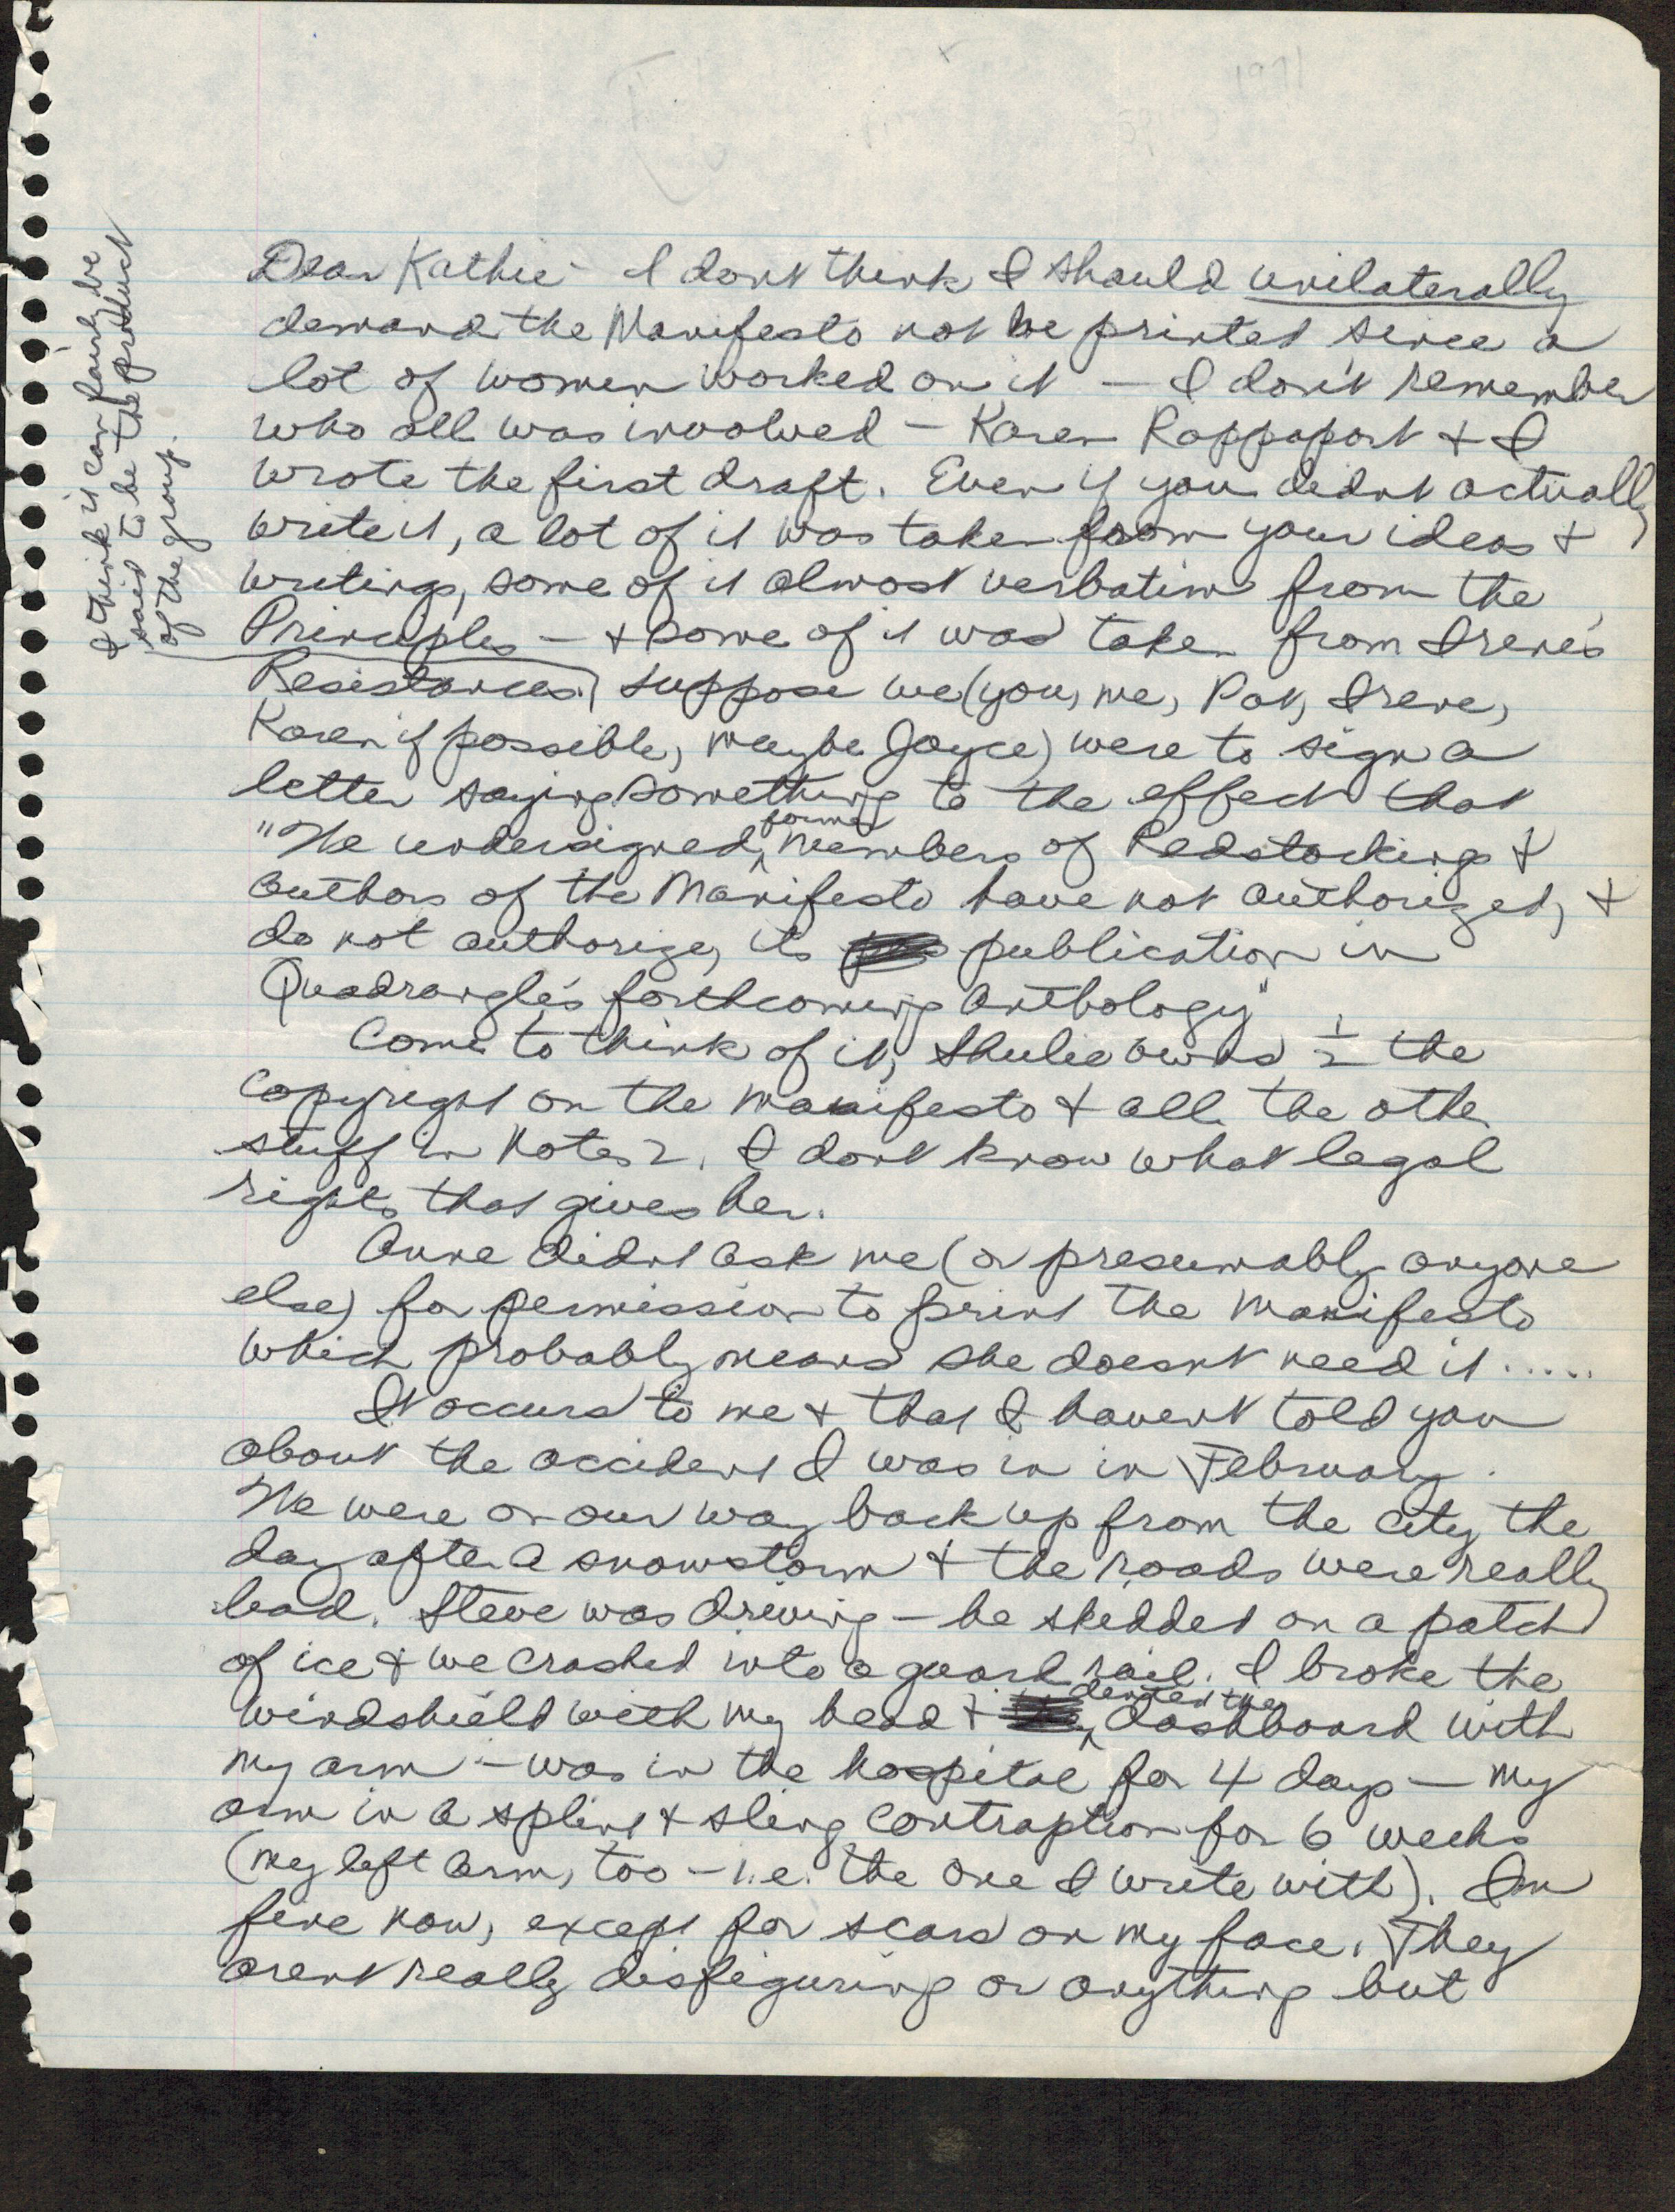 Dear Kathie - I dont think I should unilaterally
demand the Manifesto not be printed since a
lot of women worked on it — I don't remember
who all was involved — Karen Rappaport & I
wrote the first draft. Even if you didnt actually
write it, a lot of it was taken from your ideas &
writings, some of it almost verbatim from the
Principles — & some of it was taken from Irene's
Resistances. Suppose we (you, me, Pat, Irene,
Karen if possible, maybe Joyce) were to sign a
letter saying something to the effect that
"We undersigned, former members of Redstockings &
authors of the Manifesto have not authorized, &
do not authorize, its publication in
Quadrangle's forthcoming anthology"
Come to think of it, Shulie owns ½ the
copyright on the manifesto & all the other
stuff in Notes 2. I dont know what legal
rights that gives her.
Anne didnt ask me (or presumably anyone
else) for permission to print the manifesto
which probably means she doesnt need it .....
It occurs to me & that I havent told you
about the accident I was in in February.
We were on our way back up from the city the
day after a snowstorm & the roads were really
bad. Steve was driving — he skidded on a patch
of ice & we crashed into a guard rail. I broke the
windshield with my head & dented the dashboard with
my arm - was in the hospital for 4 days — my
arm in a splint & sling contraption for 6 weeks
(my left arm, too — i.e. the one I write with). Im
fine now, except for scars on my face. They
arent really disfiguring or anything but
I think it can fairly be
said to be the product
of the group.